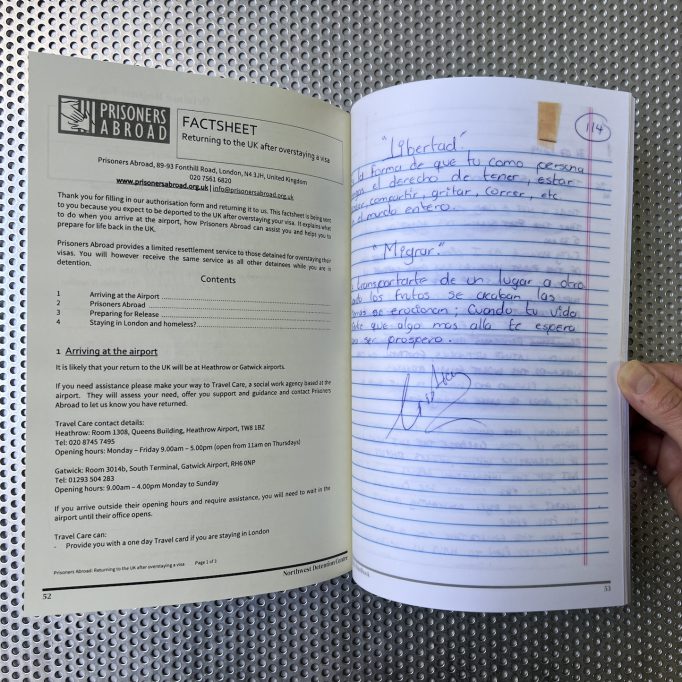 PRISONERS
ABROAD
FACTSHEET
Returning to the UK after overstaying a visa
Prisoners Abroad, 89-93 Fonthill Road, London, N4 3JH, United Kingdom
020 7561 6820
www.prisonersabroad.org.uk | info@prisonersabroad.org.uk
Thank you for filling in our authorisation form and returning it to us. This factsheet is being sent
to you because you expect to be deported to the UK after overstaying your visa. It explains what
to do when you arrive at the airport, how Prisoners Abroad can assist you and helps you to
prepare for life back in the UK.
Prisoners Abroad provides a limited resettlement service to those detained for overstaying their
visas. You will however receive the same service as all other detainees while you are in
detention.
Contents
1 Arriving at the Airport
2 Prisoners Abroad
3 Preparing for Release
4 Staying in London and homeless?
1 Arriving at the airport
It is likely that your return to the UK will be at Heathrow or Gatwick airports.
If you need assistance please make your way to Travel Care, a social work agency based at the
airport. They will assess your need, offer you support and guidance and contact Prisoners
Abroad to let us know you have returned.
Travel Care contact details:
Heathrow: Room 1308, Queens Building, Heathrow Airport, TW8 1BZ
Tel: 020 8745 7495
Opening hours: Monday – Friday 9.00am – 5.00pm (open from 11am on Thursdays)
Gatwick: Room 3014b, South Terminal, Gatwick Airport, RH6 0NP
Tel: 01293 504 283
Opening hours: 9.00am – 4.00pm Monday to Sunday
If you arrive outside their opening hours and require assistance, you will need to wait in the
airport until their office opens.
Travel Care can:
- Provide you with a one day Travel card if you are staying in London
Prisoners Abroad: Returning to the UK after overstaying a visa Page 1 of 3
52 Northwest Detention Centre
114
"Libertad".
la forma de que tu como persona
el derecho de tener, estar
compartir, gritar, correr, etc
el mundo entero.
"Migrar".
transportarte de un lugar a otro
los frutos se acaban, las
se erucionan; Cuando tu vida
que algo mas alla te espera
ser prospero.
53